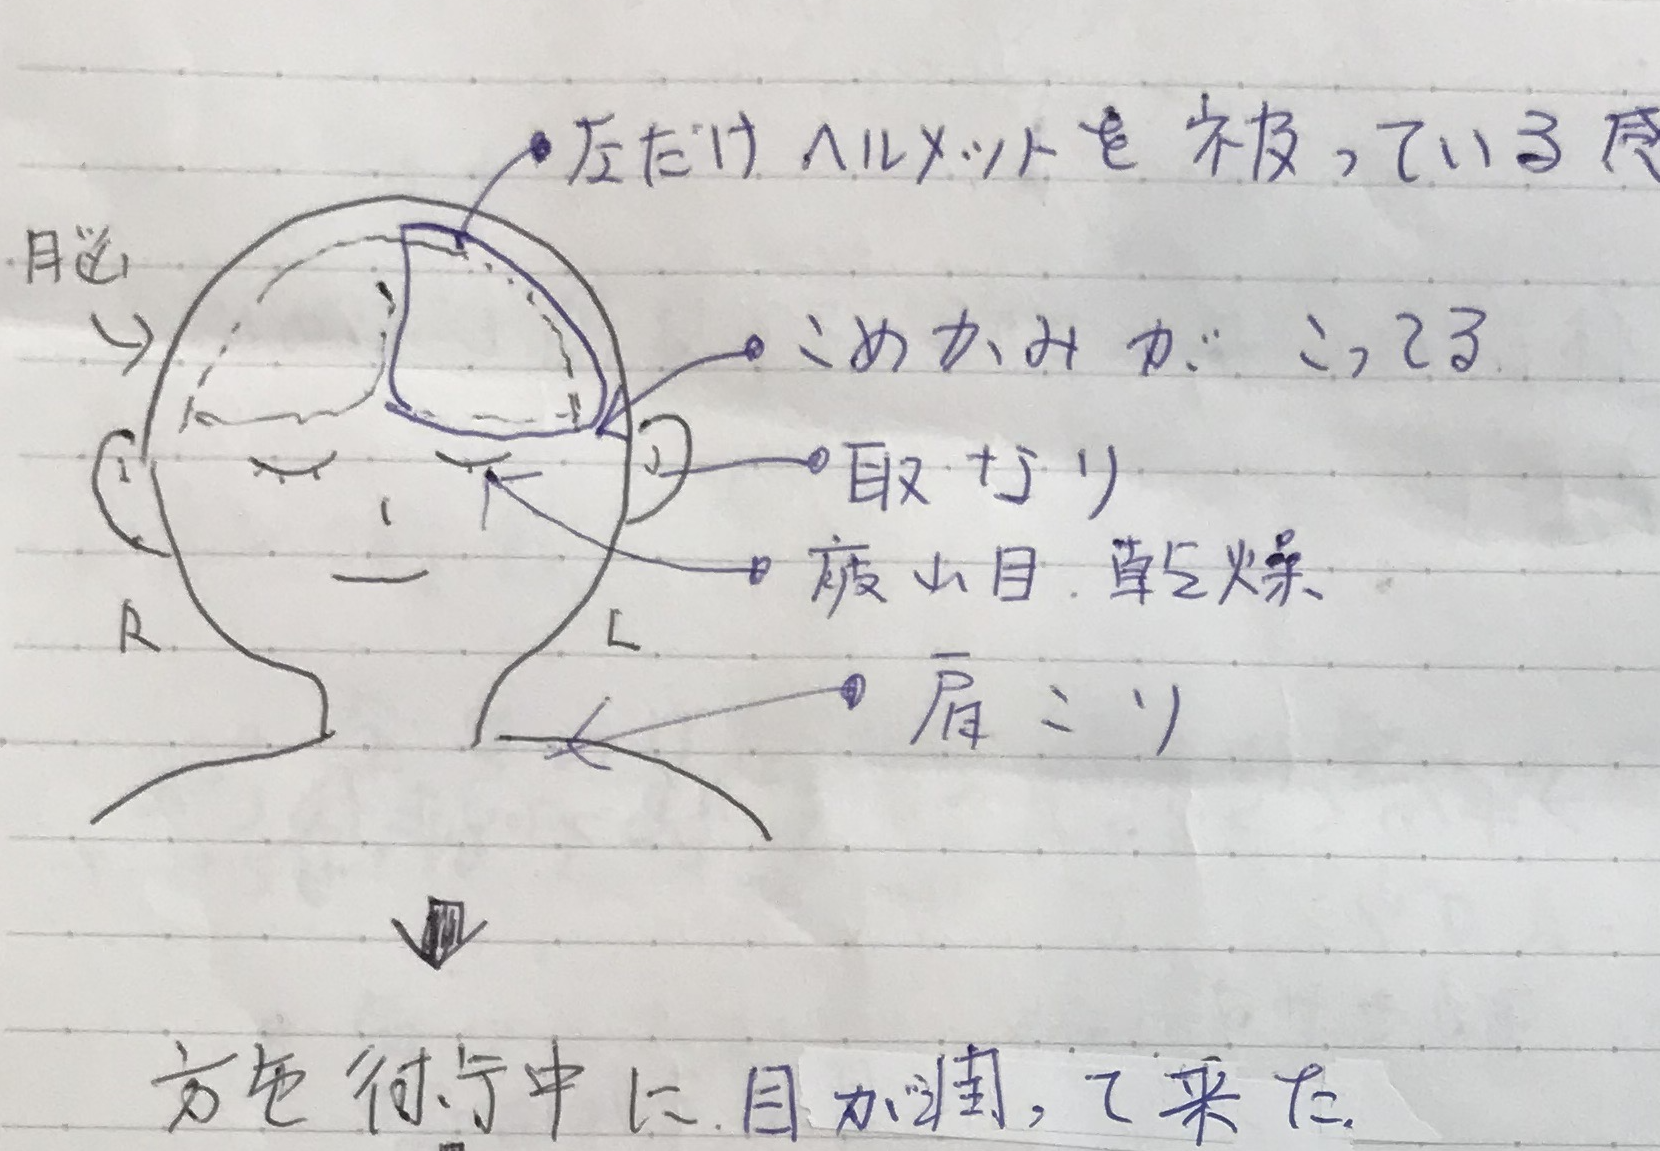 左だけヘルメットを被っている感
脳
こめかみが こってる
耳なり
疲れ目 乾燥
R L
肩こり
施術中に目が潤って来た